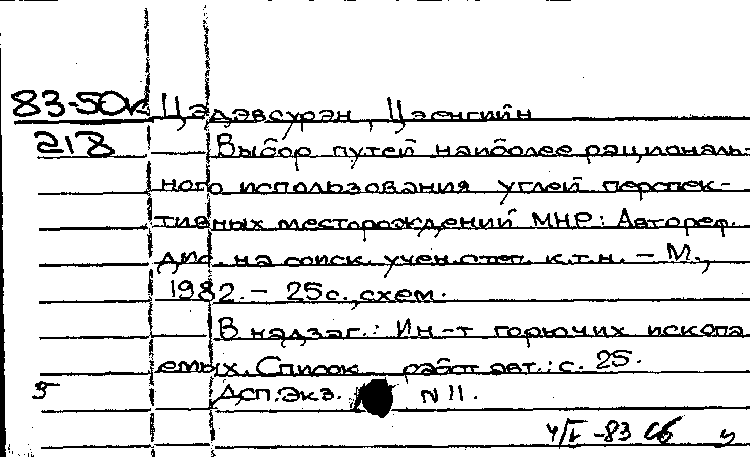 83-50к Цэдэвсурэн, Цэенгийн
218 Выбор путей наиболее рациональ-
ного использования углей перспек-
тивных месторождений МНР: Автореф.
дис. на соиск. учен. степ. к.т.н. – М.,
1982. – 25с., схем.
В надзаг.: Ин-т горючих ископа
емых. Список работ авт.: с. 25.
Дсп. Экз. N 11.
4/V -83